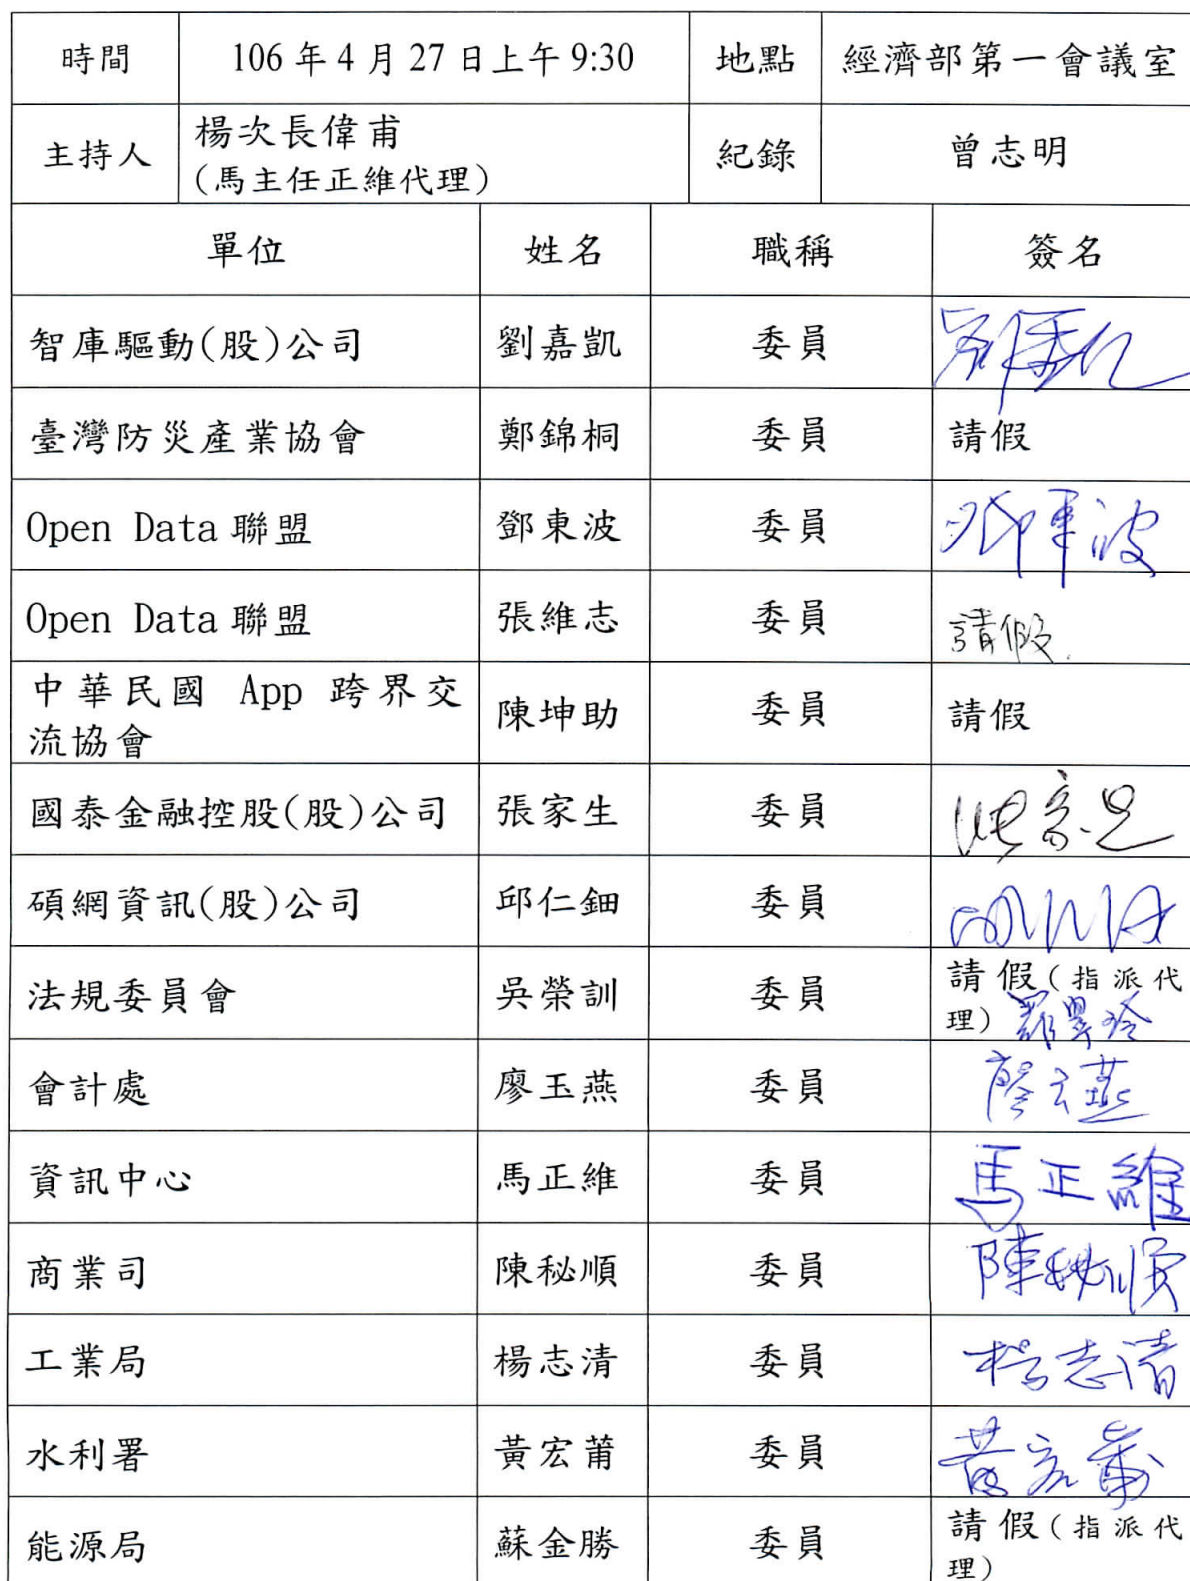 時間 106年4月27日上午9:30 地點 經濟部第一會議室
主持人 楊次長偉甫 紀錄 曾志明
(馬主任正維代理)
單位 姓名 職稱 簽名
智庫驅動(股)公司 劉嘉凱 委員
臺灣防災產業協會 鄭錦桐 委員 請假
Open Data聯盟 鄧東波 委員 鄧東波
Open Data聯盟 張維志 委員 請假.
中華民國 App 跨界交
流協會 陳坤助 委員 請假
國泰金融控股(股)公司 張家生 委員 張家生
碩網資訊(股)公司 邱仁鈿 委員
法規委員會 吳榮訓 委員 請假(指派代
理)
會計處 廖玉燕 委員 廖玉燕
資訊中心 馬正維 委員 馬正維
商業司 陳秘順 委員 陳秘順
工業局 楊志清 委員 楊志清
水利署 黃宏莆 委員 黃宏莆
能源局 蘇金勝 委員 請假(指派代
理)